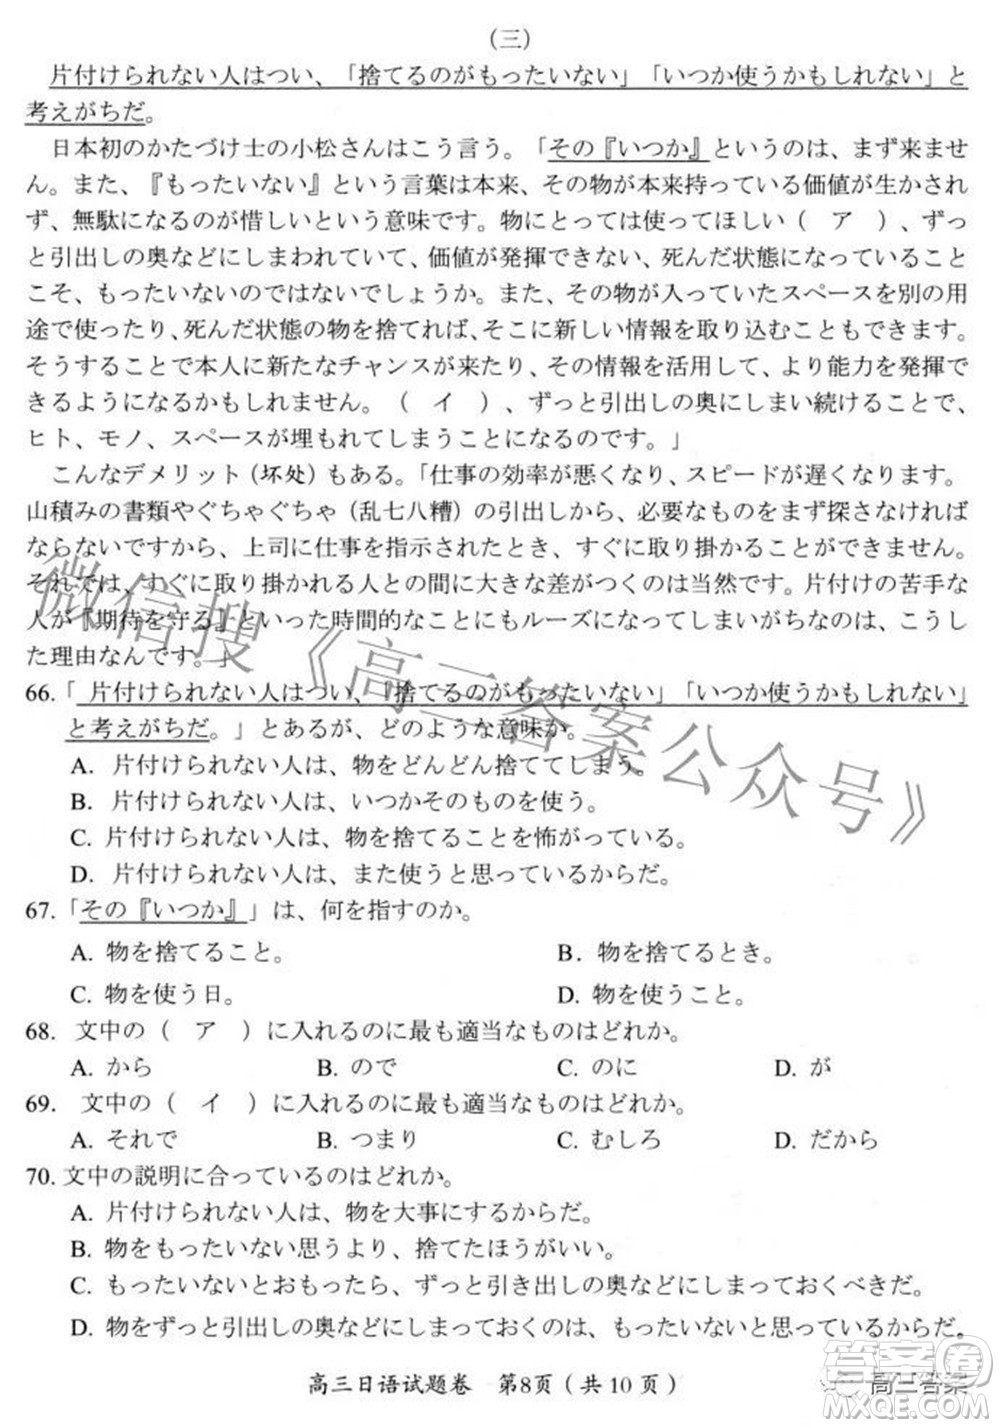 (三)
片付けられない人はつい、「捨てるのがもったいない」「いつか使うかもしれない」と
考えがちだ。
日本初のかたづけ士の小松さんはこう言う。「その『いつか』というのは、まず来ませ
ん。また、『もったいない』という言葉は本来、その物が本来持っている価値が生かされ
ず、無駄になるのが惜しいという意味です。物にとっては使ってほしい（　ア　）、ずっ
と引出しの奥などにしまわれていて、価値が発揮できない、死んだ状態になっていること
こそ、もったいないのではないでしょうか。また、その物が入っていたスペースを別の用
途で使ったり、死んだ状態の物を捨てれば、そこに新しい情報を取り込むこともできます。
そうすることで本人に新たなチャンスが来たり、その情報を活用して、より能力を発揮で
きるようになるかもしれません。（　イ　）、ずっと引出しの奥にしまい続けることで、
ヒト、モノ、スペースが埋もれてしまうことになるのです。」
こんなデメリット（坏处）もある。「仕事の効率が悪くなり、スピードが遅くなります。
山積みの書類やぐちゃぐちゃ（乱七八糟）の引出しから、必要なものをまず探さなければ
ならないですから、上司に仕事を指示されたとき、すぐに取り掛かることができません。
それでは、すぐに取り掛かる人との間に大きな差がつくのは当然です。片付けの苦手な
人が『期待を守る』といった時間的なことにもルーズになってしまいがちなのは、こうし
た理由なんです。」
66.「 片付けられない人はつい、「捨てるのがもったいない」「いつか使うかもしれない」
と考えがちだ。」とあるが、どのような意味か。
A. 片付けられない人は、物をどんどん捨ててしまう。
B. 片付けられない人は、いつかそのものを使う。
C. 片付けられない人は、物を捨てることを怖がっている。
D. 片付けられない人は、また使うと思っているからだ。
67.「その『いつか』」は、何を指すのか。
A. 物を捨てること。 B. 物を捨てるとき。
C. 物を使う日。 D. 物を使うこと。
68. 文中の（　ア　）に入れるのに最も適当なものはどれか。
A. から B. ので C. のに D. が
69. 文中の（　イ　）に入れるのに最も適当なものはどれか。
A. それで B. つまり C. むしろ D. だから
70. 文中の説明に合っているのはどれか。
A. 片付けられない人は、物を大事にするからだ。
B. 物をもったいない思うより、捨てたほうがいい。
C. もったいないとおもったら、ずっと引き出しの奥などにしまっておくべきだ。
D. 物をずっと引出しの奥などにしまっておくのは、もったいないと思っているからだ。
高三日语试题卷 第8页（共 10 页）
微信搜《高三答案公众号》
高三答案
答案圈
MXQE.COM